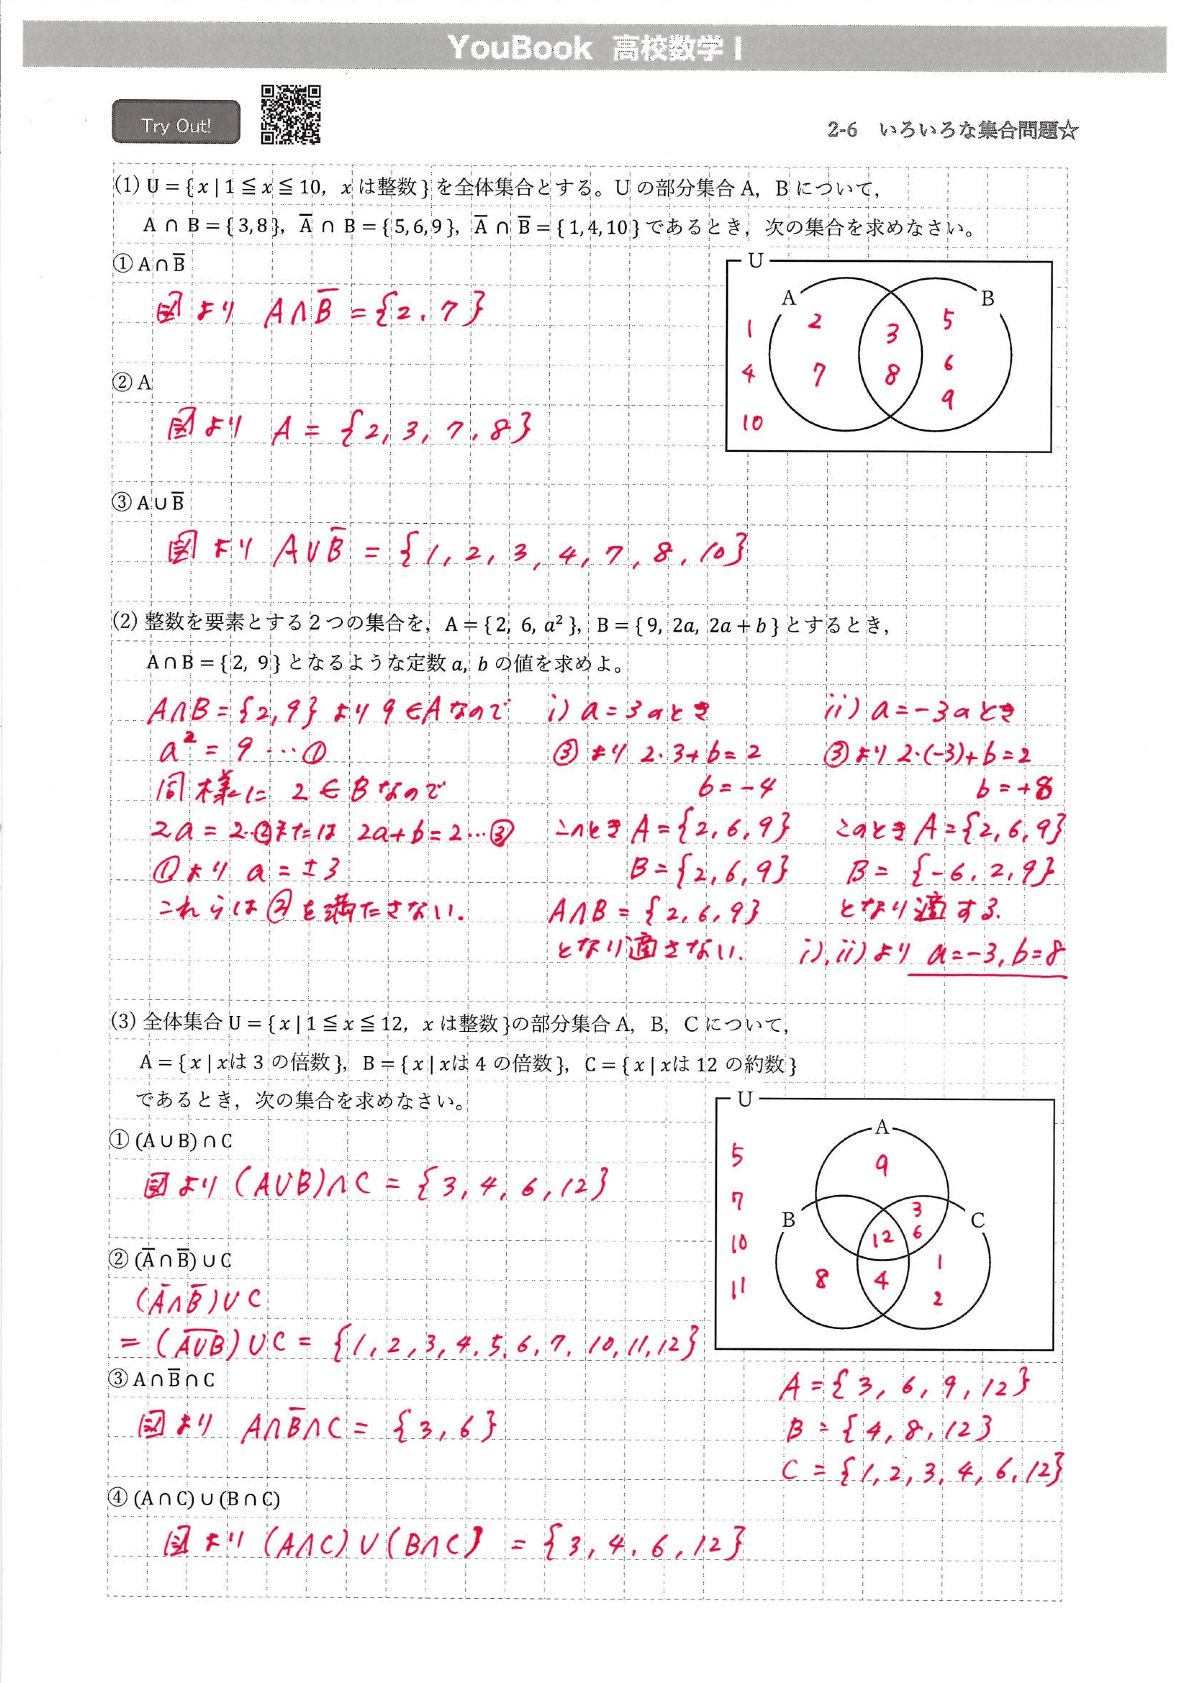 YouBook 高校数学 I
Try Out!
2-6 いろいろな集合問題☆
(1) U = { x | 1 ≦ x ≦ 10, x は整数 } を全体集合とする。U の部分集合 A, B について,
A ∩ B = { 3, 8 }, A̅ ∩ B = { 5, 6, 9 }, A̅ ∩ B̅ = { 1, 4, 10 } であるとき, 次の集合を求めなさい。
① A ∩ B̅
図より A∩B̅ = {2, 7}
② A
図より A = {2, 3, 7, 8}
③ A ∪ B̅
図より A∪B̅ = {1, 2, 3, 4, 7, 8, 10}
U
A
B
1 2 3 5
4 7 8 6
9
10
(2) 整数を要素とする2つの集合を, A = { 2, 6, a² }, B = { 9, 2a, 2a + b } とするとき,
A ∩ B = { 2, 9 } となるような定数 a, b の値を求めよ。
A∩B = {2, 9} より 9 ∈ A なので
a² = 9 … ①
同様に 2 ∈ B なので
2a = 2…②または 2a+b = 2…③
①より a = ±3
これらは②を満たさない.
i) a = 3 のとき
③より 2・3+b = 2
b = -4
このとき A = {2, 6, 9}
B = {2, 6, 9}
A∩B = {2, 6, 9}
となり適さない.
ii) a = -3 のとき
③より 2・(-3)+b = 2
b = +8
このとき A = {2, 6, 9}
B = {-6, 2, 9}
となり適する.
i), ii) より a = -3, b = 8
(3) 全体集合 U = { x | 1 ≦ x ≦ 12, x は整数 }の部分集合 A, B, C について,
A = { x | xは 3 の倍数 }, B = { x | xは 4 の倍数 }, C = { x | xは 12 の約数 }
であるとき, 次の集合を求めなさい。
① (A ∪ B) ∩ C
図より (A∪B)∩C = {3, 4, 6, 12}
② (A̅ ∩ B̅) ∪ C
(A̅∩B̅)∪C
= (A̅∪̅B̅)∪C = {1, 2, 3, 4, 5, 6, 7, 10, 11, 12}
③ A ∩ B̅ ∩ C
図より A∩B̅∩C = {3, 6}
④ (A ∩ C) ∪ (B ∩ C)
図より (A∩C)∪(B∩C) = {3, 4, 6, 12}
U
A
5
9
7
3
B
C
10
12
6
1
11
8
4
2
A = {3, 6, 9, 12}
B = {4, 8, 12}
C = {1, 2, 3, 4, 6, 12}